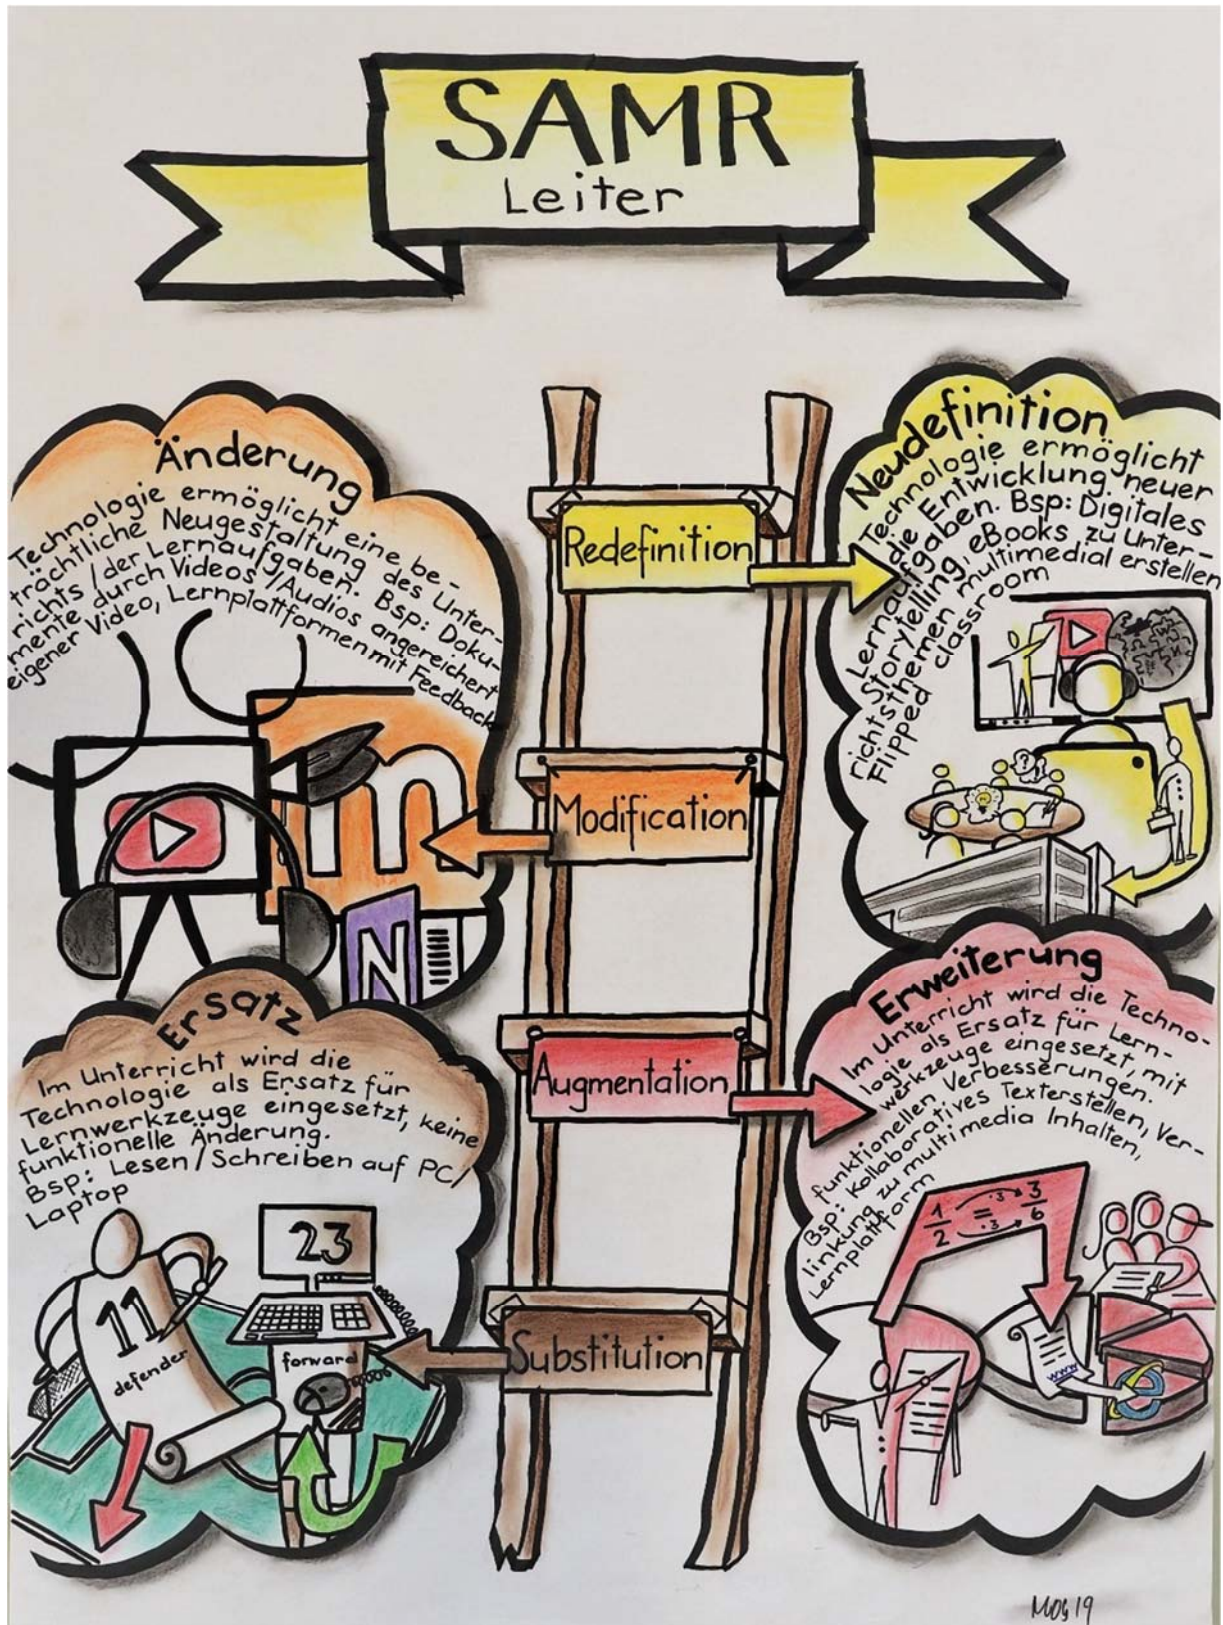 SAMR
Leiter
Änderung
Technologie ermöglicht eine be-
trächtliche Neugestaltung des Unter-
richts/der Lernaufgaben. Bsp: Doku-
mente durch Videos/Audios angereichert
eigener Video, Lernplattformen mit Feedback
m
N
Neudefinition
Technologie ermöglicht
die Entwicklung neuer
Lernaufgaben. Bsp: Digitales
Storytelling, eBooks zu Unter-
richtsthemen multimedial erstellen
Flipped classroom
Redefinition
Modification
Augmentation
Substitution
Ersatz
Im Unterricht wird die
Technologie als Ersatz für
Lernwerkzeuge eingesetzt, keine
funktionelle Änderung.
Bsp: Lesen/Schreiben auf PC/
Laptop
11
defender
23
forward
Erweiterung
Im Unterricht wird die Techno-
logie als Ersatz für Lern-
werkzeuge eingesetzt, mit
funktionellen Verbesserungen.
Bsp: Kollaboratives Texterstellen, Ver-
linkung zu multimedia Inhalten,
Lernplattform
1/2 = 3/6
·3
·3
www
e